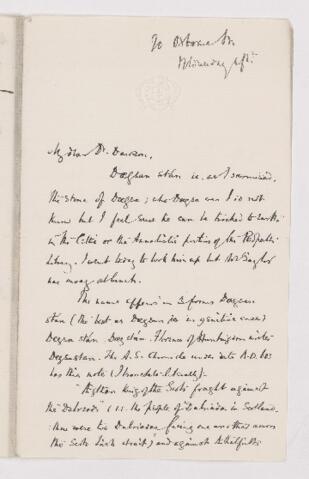 70 Osborne
Wednesday
My dear Dr. Dawson,
Dægsan stán is, as I surmised,
the stone of Dægsa; who Dægsa was I do not
know but I feel sure he can be tracked to earth
in the Celtic or the Annalistic portion of the
Library. I went today to look him up but Mr
was away at lunch.
The name appears in 3 forms Dægsan
stan (the best as Dægsan is in genitive case)
Degsa stan. Dæg stán. Florence of Huntingdon writes
Degsastan. The A.S. Chronicle under A.D. 603
has this note (I translate literally).
"Ægthan king of the Scots fought against
the Dalreods" (i.e. the people of Dalriada in Scotland.
there were two Dalriadas facing one another across
the Scots Irish strait) and against Æthelferth